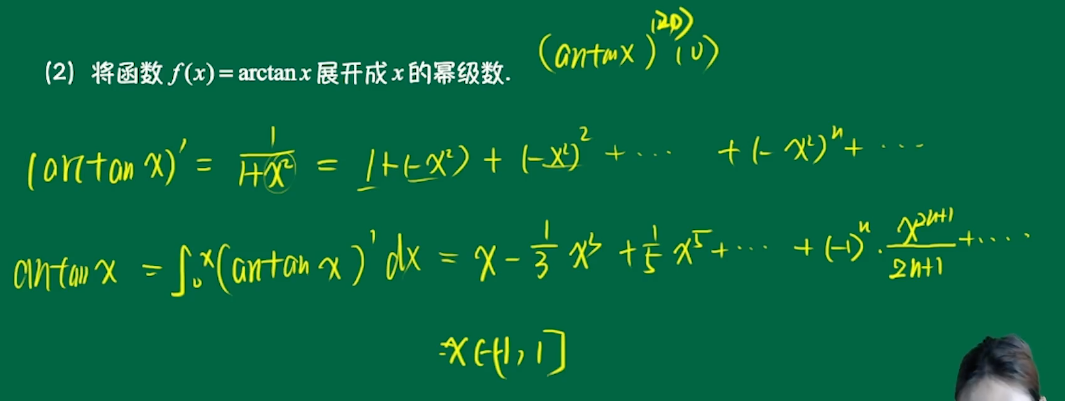 (2) 将函数 f(x) = arctan x 展开成 x 的幂级数. (arctanx)^(20)(0)
(arctan x)' = 1/(1+x²) = 1+(-x²) + (-x²)² + ··· + (-x²)ⁿ + ···
arctan x = ∫₀ˣ(arctan x)' dx = x - 1/3 x³ + 1/5 x⁵ + ··· + (-1)ⁿ · x²ⁿ⁺¹/(2n+1) + ····
x∈[-1, 1]